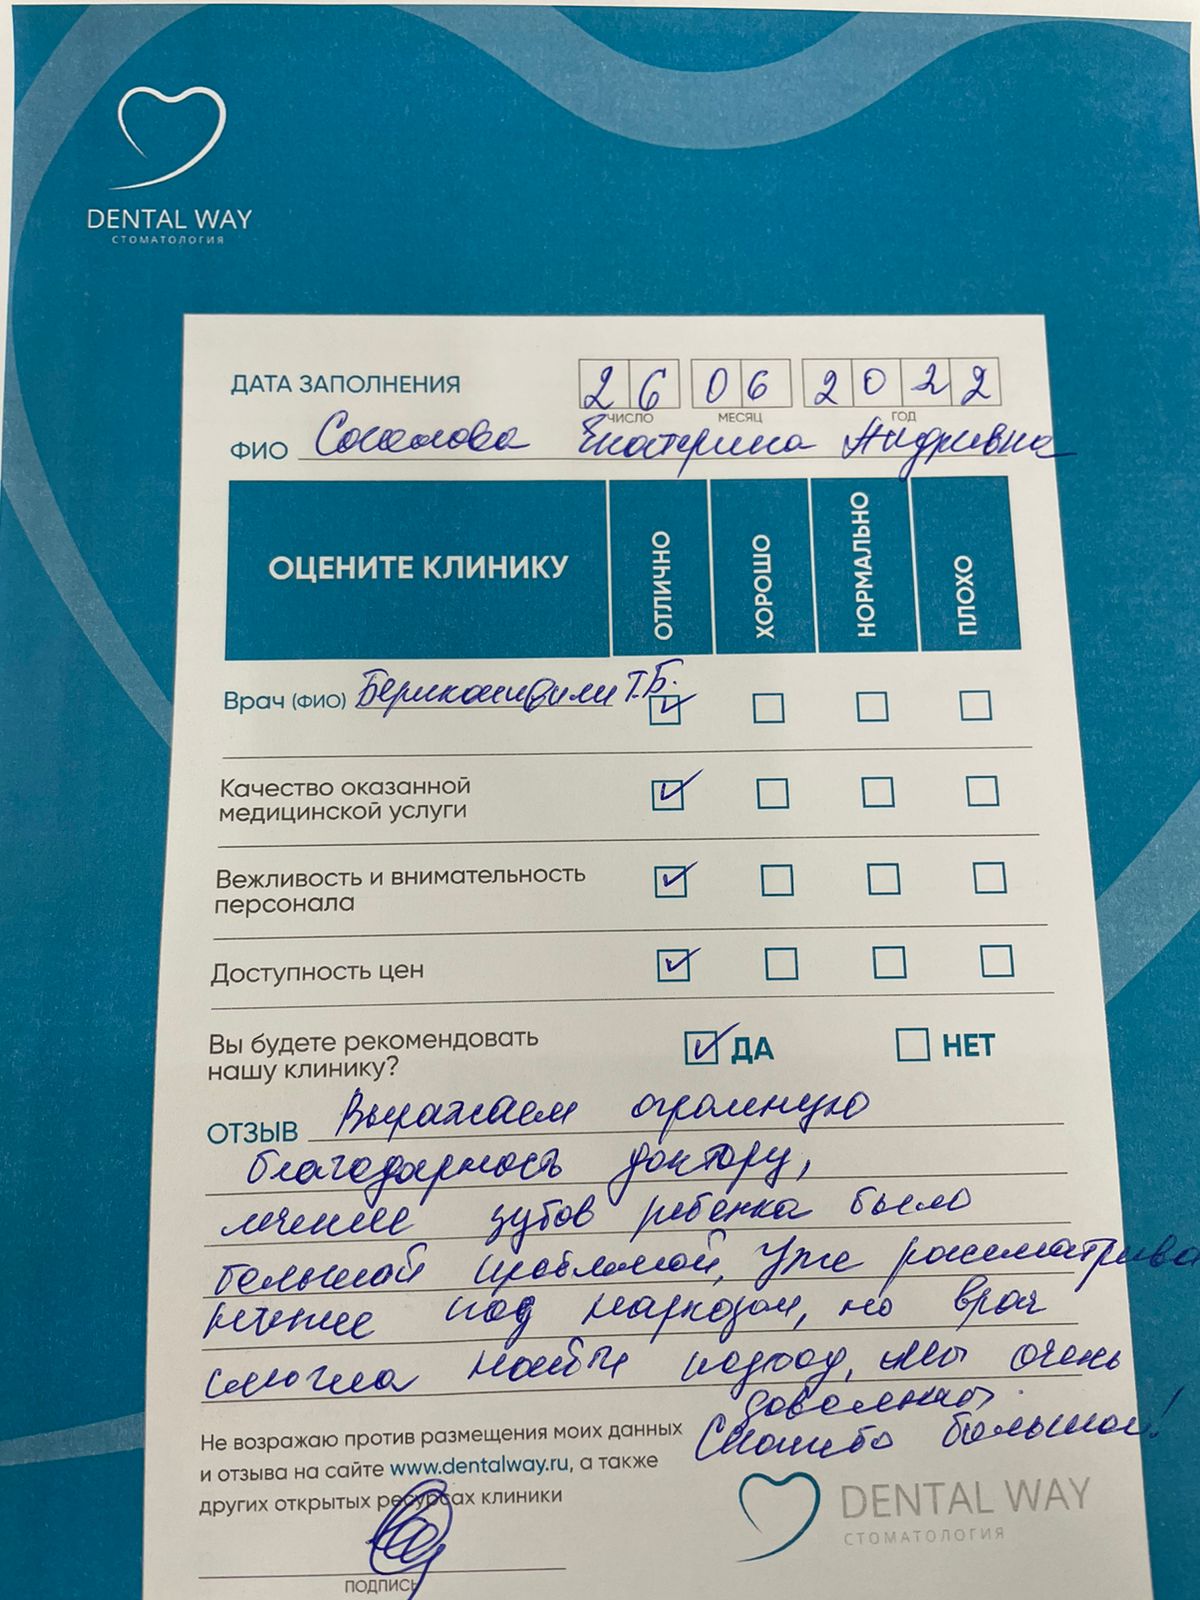 DENTAL WAY
СТОМАТОЛОГИЯ
ДАТА ЗАПОЛНЕНИЯ 26 06 2022
ЧИСЛО МЕСЯЦ ГОД
ФИО Соколова Екатерина Андривна
ОЦЕНИТЕ КЛИНИКУ ОТЛИЧНО ХОРОШО НОРМАЛЬНО ПЛОХО
Врач (ФИО) Берикашвили Т.Б.
Качество оказанной
медицинской услуги
Вежливость и внимательность
персонала
Доступность цен
Вы будете рекомендовать
нашу клинику? ДА НЕТ
ОТЗЫВ Выражаем огромную
благодарность доктору,
лечение зубов ребенка было
большой проблемой, Уже рассматрива
лечение под наркозом, но врач
смогла найти подход, мы очень
довольны.
Спасибо большое!
Не возражаю против размещения моих данных
и отзыва на сайте www.dentalway.ru, а также
других открытых ресурсах клиники
DENTAL WAY
СТОМАТОЛОГИЯ
ПОДПИСЬ